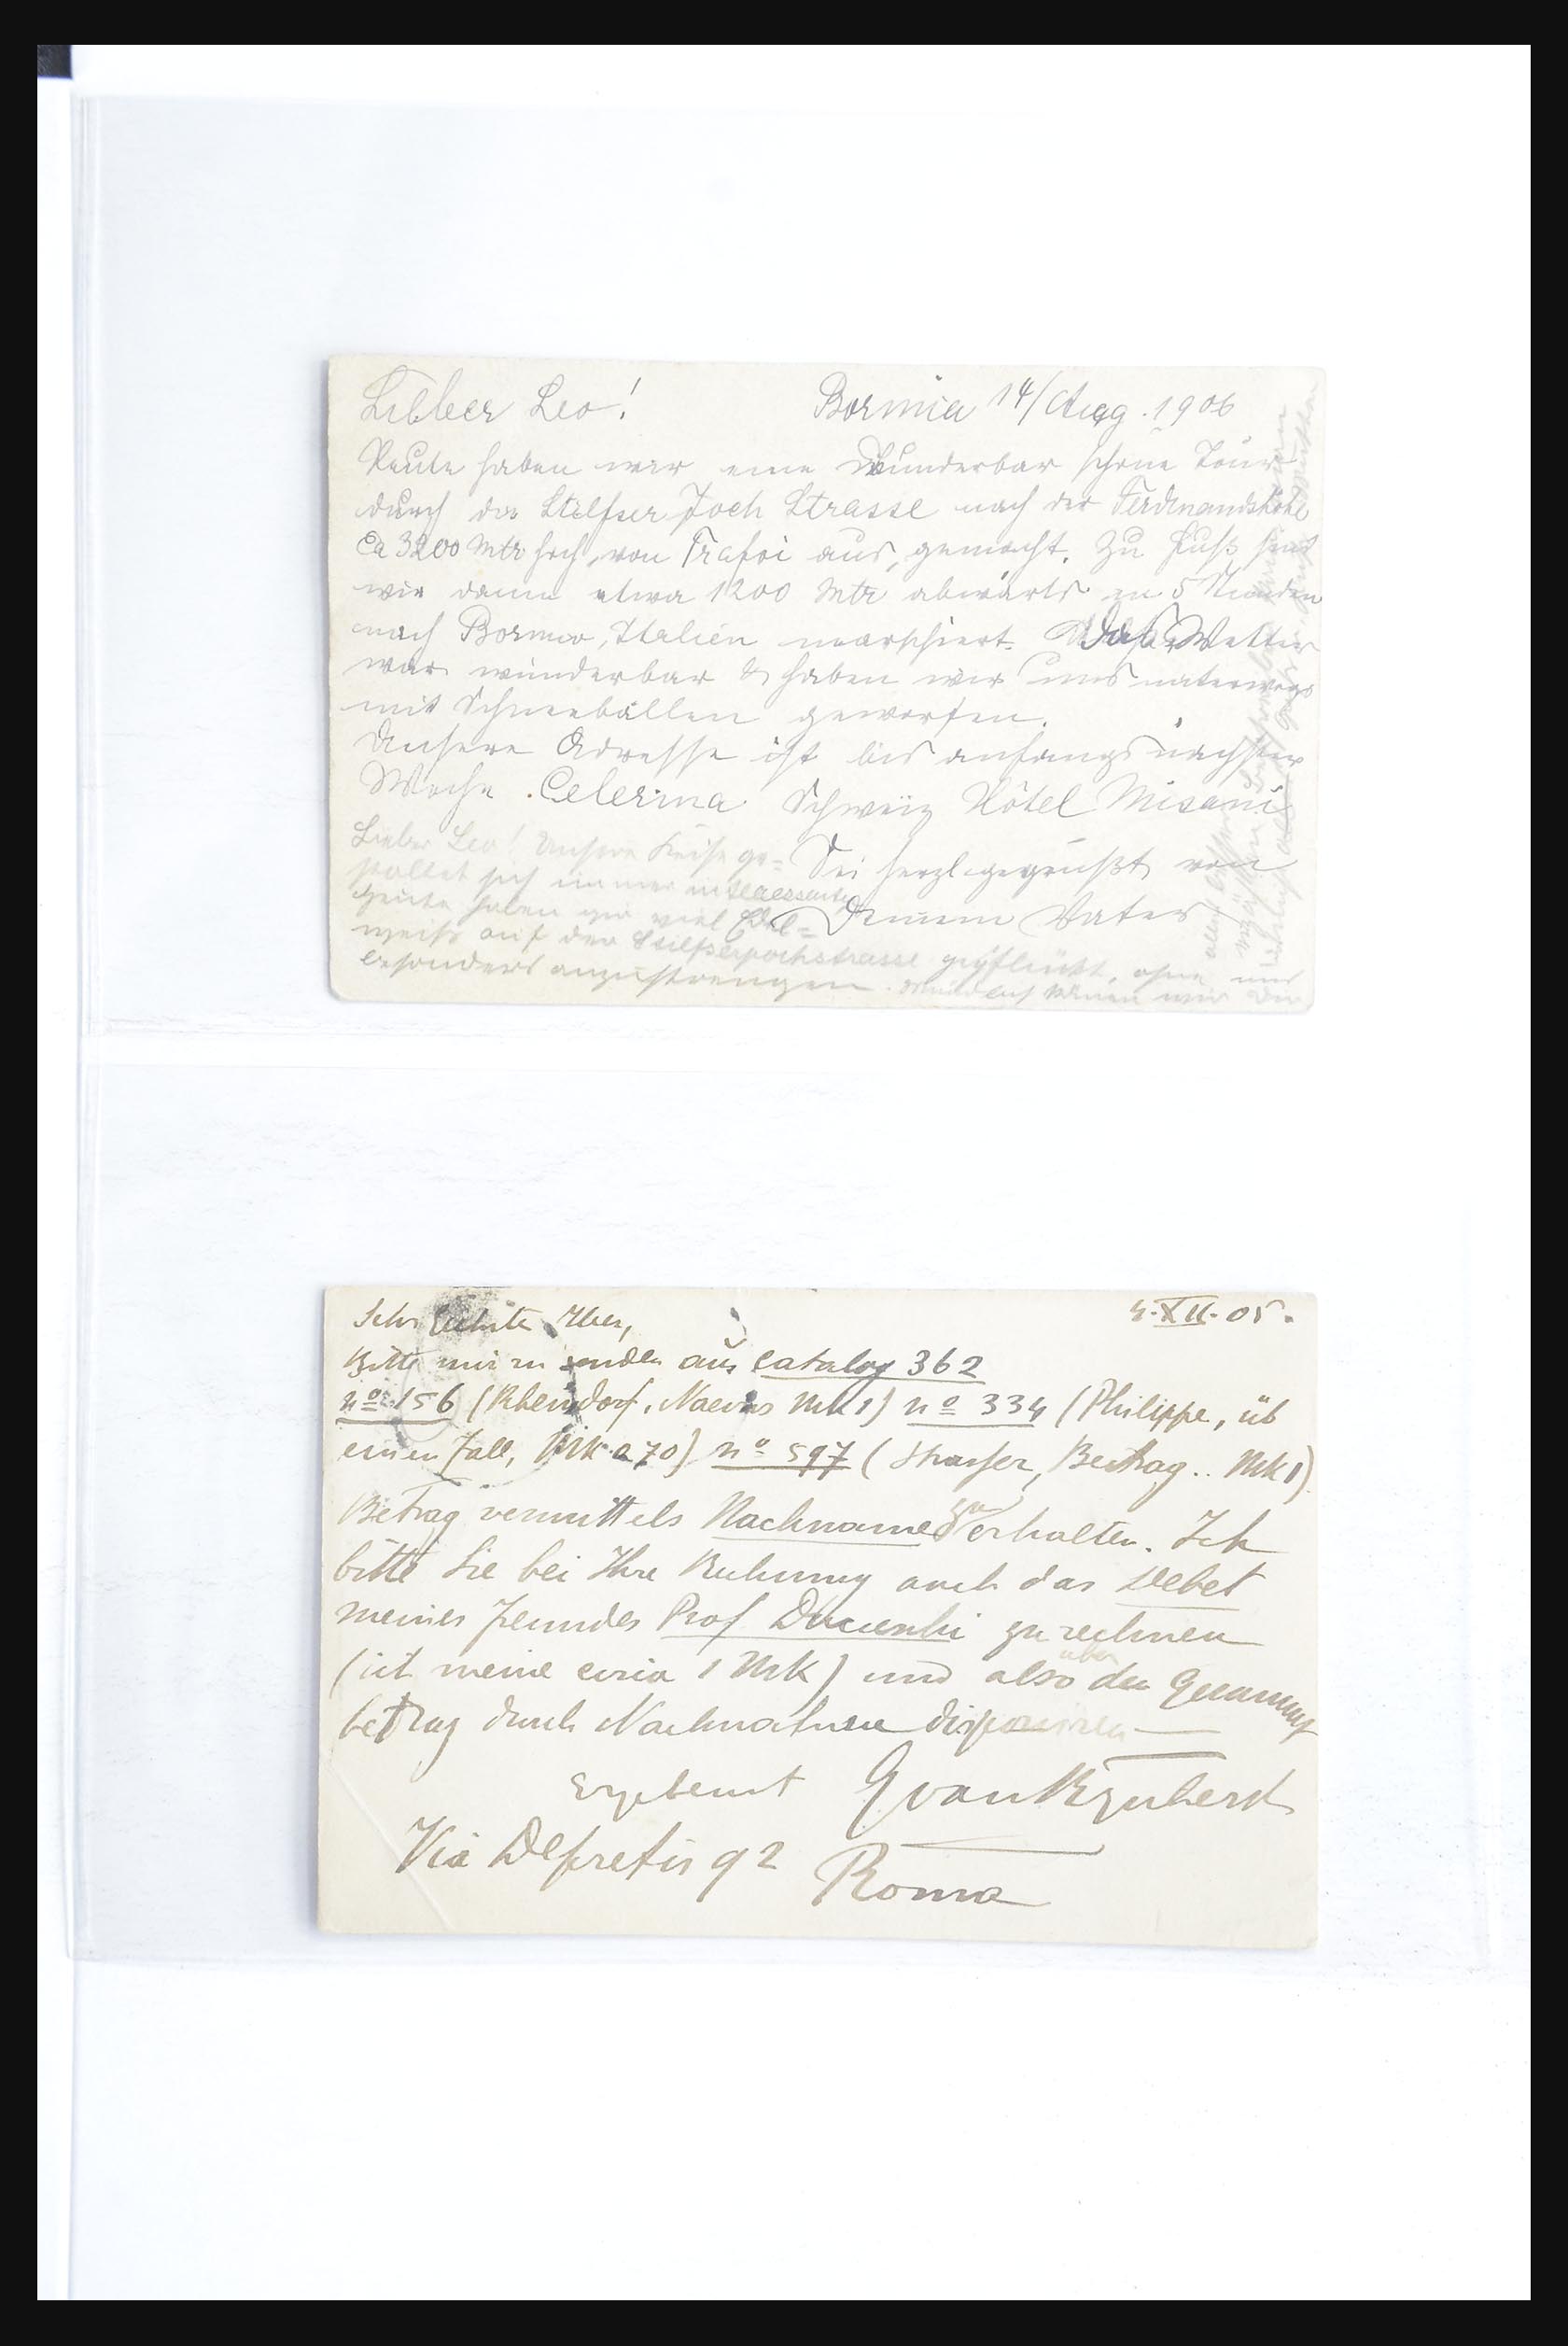 Lieber Leo! Bormio 14/Aug. 1906
Heute haben wir eine Wunderbar schöne Tour
durch die Stilfser Joch Strasse nach der Ferdinandshöhe
Ca 3200 Mtr hoch, von Trafoi aus, gemacht. Zu Fuß sind
wir dann etwa 1200 Mtr abwärts in 5 Stunden
nach Bormio, Italien marschiert. Das Wetter
war wunderbar & haben wir uns unterwegs
mit Schneebällen geworfen.
Unsere Adresse ist bis anfangs nächster
Woche. Celerina Schweiz Hôtel Misani
Sei herzl. gegrüßt von
Deinem Vater
Lieber Leo! Unsere Reise ge-
staltet sich immer interessanter
heute haben wir viel Edel-
weiß auf der Stilfserjochstrasse gepflückt, ohne uns
besonders anzustrengen. Mündlich können wir Dir
4. XII. 05.
Sehr Geehrte Herr,
Bitte mir zu senden aus Catalog 362
nº 156 (Rheindorf, Naevus Mk 1) nº 334 (Philippe, üb
einen Fall, Mk. 0.70) nº 597 (Strasser, Beitrag.. Mk 1).
Betrag vermittels Nachname zu erhalten. Ich
bitte Sie bei Ihre Rechnung auch das Debet
meines Freundes Prof zu rechnen
(ist meine circa 1 Mk) und also den Gesammt
betrag durch Nachnahme disponiren
Ergebenst
Via Depretis 92 Roma